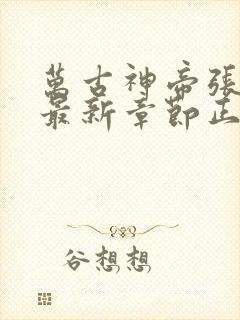 萬古神帝張
最新章節正
谷想想